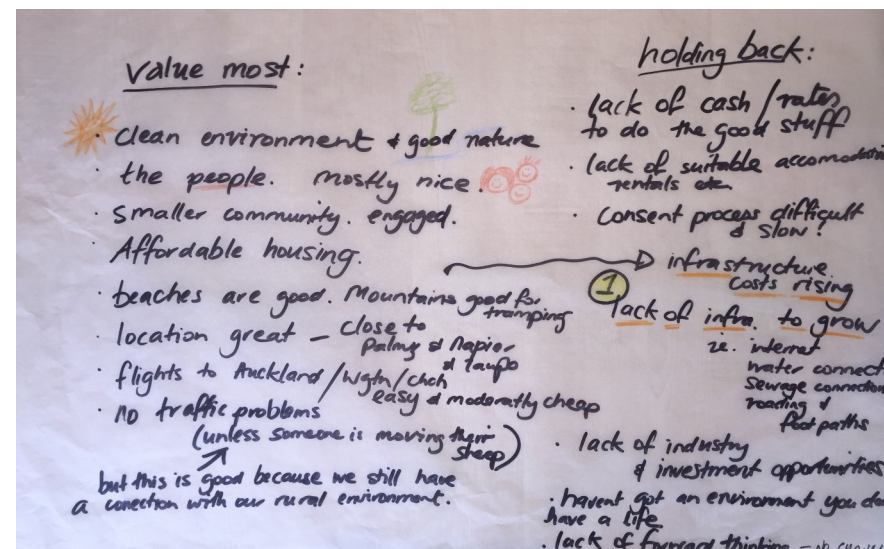 Value most:
Clean environment & good nature
the people. mostly nice.
Smaller community. engaged.
Affordable housing.
beaches are good. Mountains good for
tramping
location great – close to
Palmy & Napier
& taupo
flights to Auckland/Wgtn/chch
easy & moderatly cheap
no traffic problems
(unless someone is moving their
sheep)
but this is good because we still have
a conection with our rural environment.
holding back:
lack of cash/rates
to do the good stuff
lack of suitable
rentals etc
Consent process difficult
& slow!
infrastructure
costs rising
1
lack of infra. to grow
ie. internet
water connect
Sewage connection
roading &
foot paths
lack of industry
& investment opportunities
havent got an environment you
have a life
lack of forward thinking –